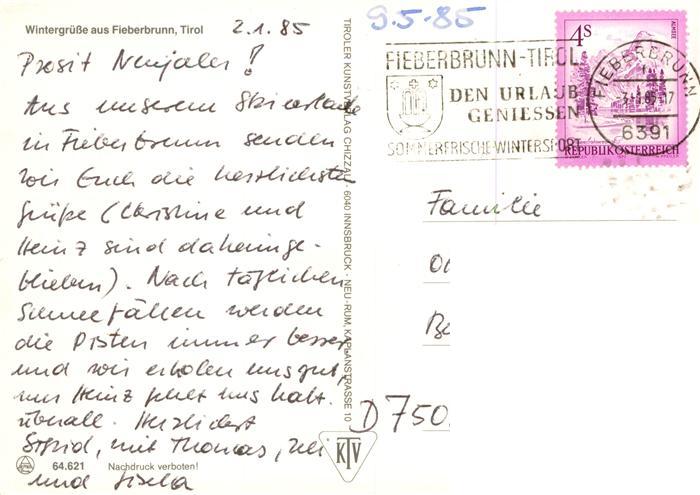 Wintergrüße aus Fieberbrunn, Tirol
2.1.85
Prosit Neujahr!
Aus unserem Skiurlaub
in Fieberbrunn senden
wir Euch die herzlichsten
Grüße (Christine und
Heinz sind daheimge-
blieben). Nach täglichen
Schneefällen werden
die Pisten immer besser
und wir erholen uns gut,
nur Heinz fehlt uns halt
überall. Herzlichst
mit Thomas,
und Gisela
64.621 Nachdruck verboten!
TIROLER KUNSTVERLAG CHIZZALI · 6040 INNSBRUCK · NEU-RUM, KAPLANSTRASSE 10
KTV
9.5.85
FIEBERBRUNN-TIROL
DEN URLAUB
GENIESSEN
SOMMERFRISCHE-WINTERSPORT
4S
ALMSEE
REPUBLIK ÖSTERREICH
FIEBERBRUNN
6391
Familie
D 750